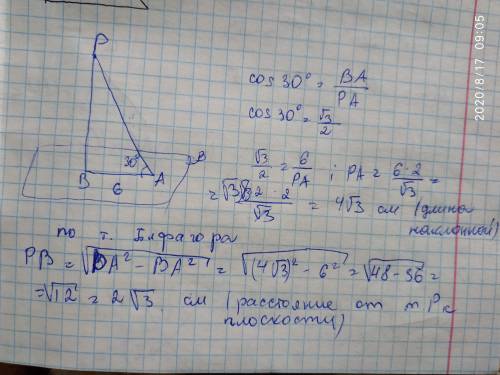 P
30°
B
A
6
B
cos 30° = BA / PA
cos 30° = √3 / 2
√3 / 2 = 6 / PA ; PA = 6·2 / √3 =
= √3·√3·2·2 / √3 = 4√3 см (длина
наклонной)
по т. Пифагора
PB = √PA² - BA² = √(4√3)² - 6² = √48 - 36 =
= √12 = 2√3 см (расстояние от т P к
плоскости)
2020/8/17 09:05